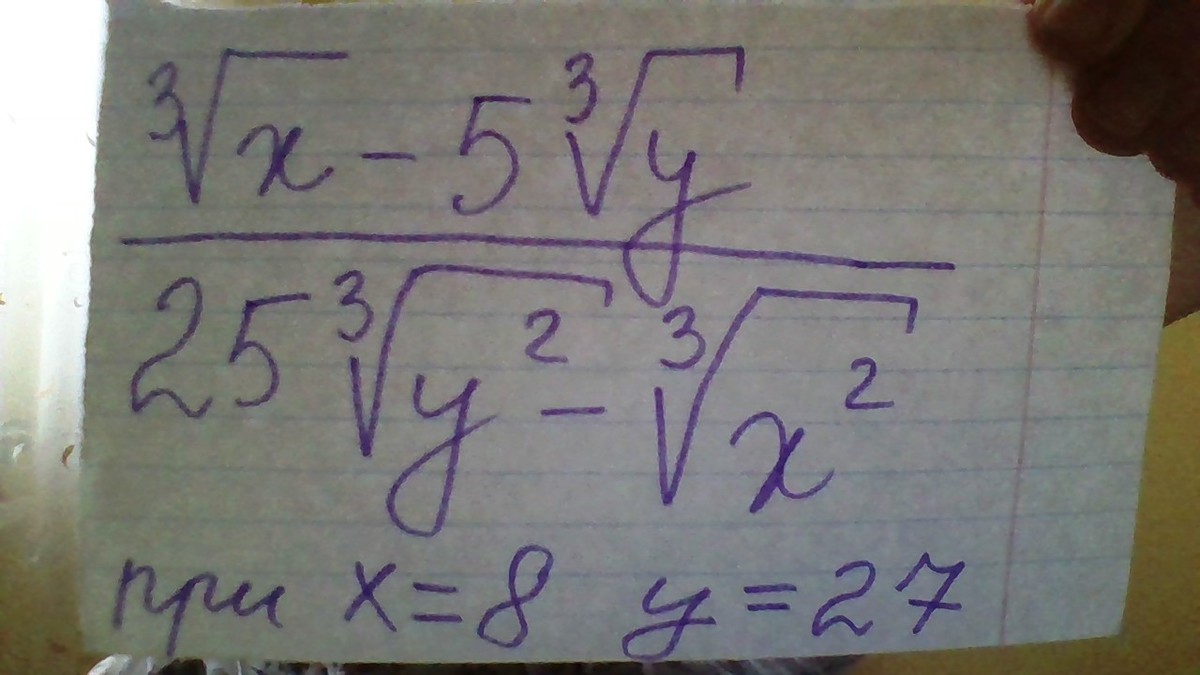 ∛x - 5∛y
25∛y² - ∛x²
при x = 8 y = 27